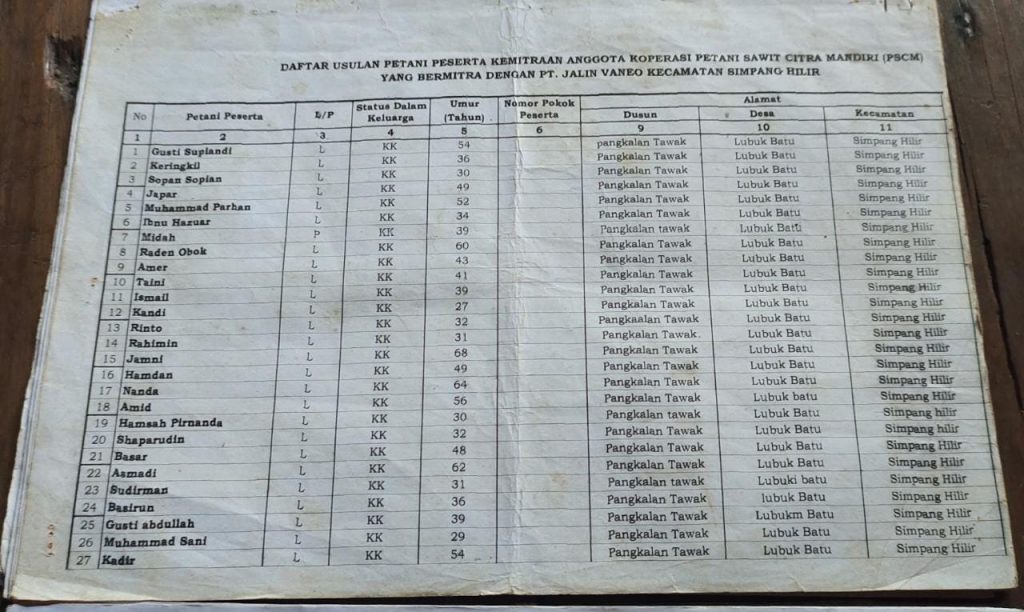 DAFTAR USULAN PETANI PESERTA KEMITRAAN ANGGOTA KOPERASI PETANI SAWIT CITRA MANDIRI (PSCM)
YANG BERMITRA DENGAN PT. JALIN VANEO KECAMATAN SIMPANG HILIR
No Petani Peserta L/P Status Dalam Keluarga Umur (Tahun) Nomor Pokok Peserta Alamat
Dusun Desa Kecamatan
1 2 3 4 5 6 9 10 11
1 Gusti Supiandi L KK 54 pangkalan Tawak Lubuk Batu Simpang Hilir
2 Keringkil L KK 36 Pangkalan Tawak Lubuk Batu Simpang Hilir
3 Sopan Sopian L KK 30 Pangkalan Tawak Lubuk Batu Simpang Hilir
4 Japar L KK 49 Pangkalan Tawak Lubuk Batu Simpang Hilir
5 Muhammad Parhan L KK 52 Pangkalan Tawak Lubuk Batu Simpang Hilir
6 Ibnu Hazuar L KK 34 Pangkalan Tawak Lubuk Batu Simpang Hilir
7 Midah P KK 39 Pangkalan tawak Lubuk Batu Simpang Hilir
8 Raden Obok L KK 60 Pangkalan Tawak Lubuk Batu Simpang Hilir
9 Amer L KK 43 Pangkalan Tawak Lubuk Batu Simpang Hilir
10 Taini L KK 41 Pangkalan Tawak Lubuk Batu Simpang Hilir
11 Ismail L KK 39 Pangkalan Tawak Lubuk Batu Simpang Hilir
12 Kandi L KK 27 Pangkalan Tawak Lubuk Batu Simpang Hilir
13 Rinto L KK 32 Pangkaalan Tawak Lubuk Batu Simpang Hilir
14 Rahimin L KK 31 Pangkalan Tawak. Lubuk Batu Simpang Hilir
15 Jamni L KK 68 Pangkalan Tawak Lubuk Batu Simpang Hilir
16 Hamdan L KK 49 Pangkalan Tawak Lubuk Batu Simpang Hilir
17 Nanda L KK 64 Pangkalan Tawak Lubuk Batu Simpang Hilir
18 Amid L KK 56 Pangkalan Tawak Lubuk batu Simpang Hilir
19 Hamsah Pirnanda L KK 30 Pangkalan tawak Lubuk Batu Simpang hilir
20 Shaparudin L KK 32 Pangkalan Tawak Lubuk Batu Simpang hilir
21 Basar L KK 48 Pangkalan Tawak Lubuk Batu Simpang Hilir
22 Asmadi L KK 62 Pangkalan Tawak Lubuk Batu Simpang Hilir
23 Sudirman L KK 31 Pangkalan tawak Lubuki batu Simpang Hilir
24 Basirun L KK 36 Pangkalan Tawak lubuk Batu Simpang Hilir
25 Gusti abdullah L KK 39 Pangkalan Tawak Lubukm Batu Simpang Hilir
26 Muhammad Sani L KK 29 Pangkalan Tawak Lubuk Batu Simpang Hilir
27 Kadir L KK 54 Pangkalan Tawak Lubuk Batu Simpang Hilir